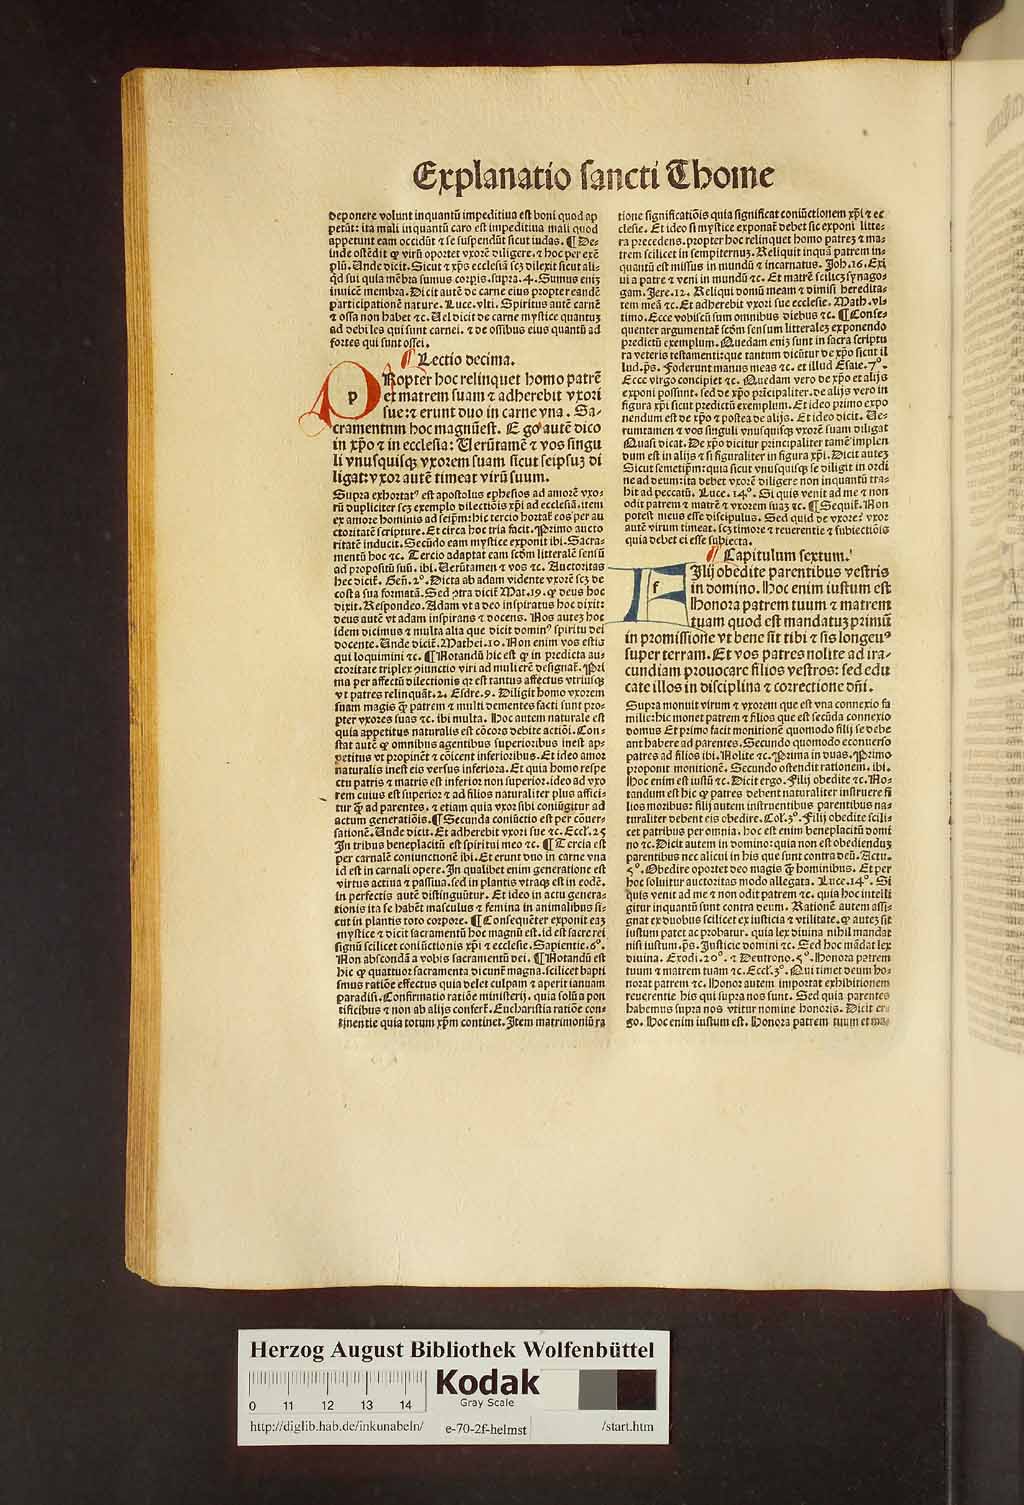 Explanatio sancti Thome
deponere volunt inquantū impeditiua est boni quod ap
petūt: ita mali inquantū caro est impeditiua mali quod
appetunt eam occidūt ⁊ se suspendūt sicut iudas. ¶ De-
inde ostēdit ꝙ virū oportet vxorē diligere. ⁊ hoc per exē
plū. Unde dicit. Sicut ⁊ xp̄s ecclesiā scꝫ dilexit sicut ali-
qd sui quia mēbra sumus corpis. supra. 4. Sumus eniꝫ
inuicē membra. Dicit autē de carne eius propter eandē
participationē nature. Luce. vlti. Spiritus autē carnē
⁊ ossa non habet ⁊c. Uel dicit de carne mystice quantuꝫ
ad debiles qui sunt carnei. ⁊ de ossibus eius quantū ad
fortes qui sunt ossei.
¶ Lectio decima.
PRopter hoc relinquet homo patrē
et matrem suam ⁊ adherebit vxori
sue: ⁊ erunt duo in carne vna. Sa-
cramentum hoc magnū est. Ego autē dico
in xp̄o ⁊ in ecclesia: Uerūtamē ⁊ vos singu
li vnusquisqꝫ vxorem suam sicut seipsuꝫ di
ligat: vxor autē timeat virū suum.
Supra exhortatꝰ est apostolus ephesios ad amorē vxo-
rū dupliciter scꝫ exemplo dilectiōis xp̄i ad ecclesiā. item
ex amore hominis ad seipm̄: hic tercio hortat̄ eos per au
ctoritatē scripture. Et circa hoc tria facit. Primo aucto
ritatē inducit. Secūdo eam mystice exponit ibi. Sacra-
mentū hoc ⁊c. Tercio adaptat eam scd̄m litteralē sensū
ad propositū suū. ibi. Uerūtamen ⁊ vos ⁊c. Auctoritas
hec dicit̄. Gen̄. 2°. Dicta ab adam vidente vxorē scꝫ de
costa sua formatā. Sed ꝯtra dicit̄ Mat. 19. ꝙ deus hoc
dixit. Respondeo. Adam vt a deo inspiratus hoc dixit:
deus autē vt adam inspirans ⁊ docens. Nos auteꝫ hoc
idem dicimus ⁊ multa alia que dicit dominꝰ spiritu dei
docente. Unde dicit̄. Mathei. 10. Non enim vos estis
qui loquimini ⁊c. ¶ Notandū hic est ꝙ in predicta au-
ctoritate triplex ꝯiunctio viri ad mulierē designat̄. Pri
ma per affectū dilectionis qꝛ est tantus affectus vtriusqꝫ
vt patres relinquāt. 2. Esdre. 9. Diligit homo vxorem
suam magis ꝙ̄ patrem ⁊ multi dementes facti sunt pro-
pter vxores suas ⁊c. ibi multa. Hoc autem naturale est
quia appetitus naturalis est cōcors debite actiōi. Con-
stat autē ꝙ omnibus agentibus superioribus inest ap-
petitus vt propinēt ⁊ cōicent inferioribus. Et ideo amor
naturalis inest eis versus inferiora. Et quia homo respe
ctu patris ⁊ matris est inferior non superior. ideo ad vxo
rem cuius est superior ⁊ ad filios naturaliter plus affici-
tur ꝙ̄ ad parentes. ⁊ etiam quia vxor sibi coniūgitur ad
actum generatiōis. ¶ Secunda coniūctio est per cōuer-
sationē. Unde dicit. Et adherebit vxori sue ⁊c. Eccl. 25
In tribus beneplacitū est spiritui meo ⁊c. ¶ Tercia est
per carnalē coniunctionē ibi. Et erunt duo in carne vna
id est in carnali opere. In qualibet enim generatione est
virtus actiua ⁊ passiua. sed in plantis vtraqꝫ est in eodē.
in perfectis autē distinguūtur. Et ideo in actu genera-
tionis ita se habēt masculus ⁊ femina in animalibus si-
cut in plantis toto corpore. ¶ Consequēter exponit eaꝫ
mystice ⁊ dicit sacramentū hoc magnū est. id est sacre rei
signū scilicet coniūctionis xp̄i ⁊ ecclesie. Sapientie. 6°.
Non abscondā a vobis sacramentū dei. ¶ Notandū est
hic ꝙ quattuor sacramenta dicunt̄ magna. scilicet bapti
smus ratiōe effectus quia delet culpam ⁊ aperit ianuam
paradisi. Confirmatio ratiōe ministerij. quia solū a pon
tificibus ⁊ non ab alijs confert̄. Eucharistia ratiōe con-
tinentie quia totum xp̄m continet. Item matrimoniū ra
tione significatiōis quia significat coniūctionem xp̄i ⁊ ec
clesie. Et ideo si mystice exponat̄ debet sic exponi litte-
ra precedens. propter hoc relinquet homo patreꝫ ⁊ ma-
trem scilicet in sempiternuꝫ. Reliquit inquā patrem in-
quantū est missus in mundū ⁊ incarnatus. Joh. 16. Exi
ui a patre ⁊ veni in mundū ⁊c. Et matrē scilicꝫ synago-
gam. Jere. 12. Reliqui domū meam ⁊ dimisi heredita-
tem meā ⁊c. Et adherebit vxori sue ecclesie. Math. vl-
timo. Ecce vobiscū sum omnibus diebus ⁊c. ¶ Conse-
quenter argumentat̄ scd̄m sensum litteraleꝫ exponendo
predictū exemplum. Quedam eniꝫ sunt in sacra scriptu
ra veteris testamenti: que tantum dicūtur de xp̄o sicut il
lud. ps̄. Foderunt manus meas ⁊c. et illud Esaie. 7°.
Ecce virgo concipiet ⁊c. Quedam vero de xp̄o et alijs
exponi possunt. sed de xp̄o prīcipaliter. de alijs vero in
figura xp̄i sicut predictū exemplum. Et ideo primo expo
nendum est de xp̄o ⁊ postea de alijs. Et ideo dicit. Ue-
rumtamen ⁊ vos singuli vnusquisqꝫ vxorē suam diligat
Quasi dicat. De xp̄o dicitur principaliter tamē implen
dum est in alijs ⁊ si figuraliter in figura xp̄i. Dicit auteꝫ
Sicut semetip̄m: quia sicut vnusquisqꝫ se diligit in ordi
ne ad deum: ita debet vxorē diligere non inquantū tra-
hit ad peccatū. Luce. 14°. Si quis venit ad me ⁊ non
odit patrem ⁊ matrē ⁊ vxorem suaꝫ ⁊c. ¶ Sequit̄. Non
potest meus esse discipulus. Sed quid de vxore? vxor
autē virum timeat. scꝫ timore ⁊ reuerentie ⁊ subiectiōis
quia debet ei esse subiecta.
¶ Capitulum sextum.
FIlij obedite parentibus vestris
in domino. Hoc enim iustum est
Honora patrem tuum ⁊ matrem
tuam quod est mandatuꝫ primū
in promissione vt bene sit tibi ⁊ sis longeuꝰ
super terram. Et vos patres nolite ad ira-
cundiam prouocare filios vestros: sed edu
cate illos in disciplina ⁊ correctione dn̄i.
Supra monuit virum ⁊ vxorem que est vna connexio fa
milie: hic monet patrem ⁊ filios que est secūda connexio
domus Et primo facit monitionē quomodo filij se debe
ant habere ad parentes. Secundo quomodo econuerso
patres ad filios ibi. Nolite ⁊c. Prima in duas. Primo
proponit monitionē. Secundo ostendit rationem. ibi.
Hoc enim est iustū ⁊c. Dicit ergo. Filij obedite ⁊c. No-
tandum est hic ꝙ patres debent naturaliter instruere fi
lios moribus: filij autem instruentibus parentibus na-
turaliter debent eis obedire. Col. 3°. Filij obedite scili-
cet patribus per omnia. hoc est enim beneplacitū domi
no ⁊c. Dicit autem in domino: quia non est obedienduꝫ
parentibus nec alicui in his que sunt contra deū. Actu.
5°. Obedire oportet deo magis ꝙ̄ hominibus. Et per
hoc soluitur auctoritas modo allegata. Luce. 14°. Si
quis venit ad me ⁊ non odit patrem ⁊c. quia hoc intelli
gitur inquantū sunt contra deum. Rationē autem assi-
gnat ex duobus scilicet ex iusticia ⁊ vtilitate. ꝙ auteꝫ sit
iustum patet ac probatur. quia lex diuina nihil mandat
nisi iustum. ps̄. Justicie domini ⁊c. Sed hoc mādat lex
diuina. Exodi. 20°. ⁊ Deutrono. 5°. Honora patrem
tuum ⁊ matrem tuam ⁊c. Eccl̄. 3°. Qui timet deum ho-
norat patrem ⁊c. Honor autem importat exhibitionem
reuerentie his qui supra nos sunt. Sed quia parentes
habemus supra nos vtitur nomine honoris. Dicit er-
go. Hoc enim iustum est. Honora patrem tuum et ma-
Herzog August Bibliothek Wolfenbüttel
0 11 12 13 14
Kodak
Gray Scale
http://diglib.hab.de/inkunabeln/ e-70-2f-helmst /start.htm